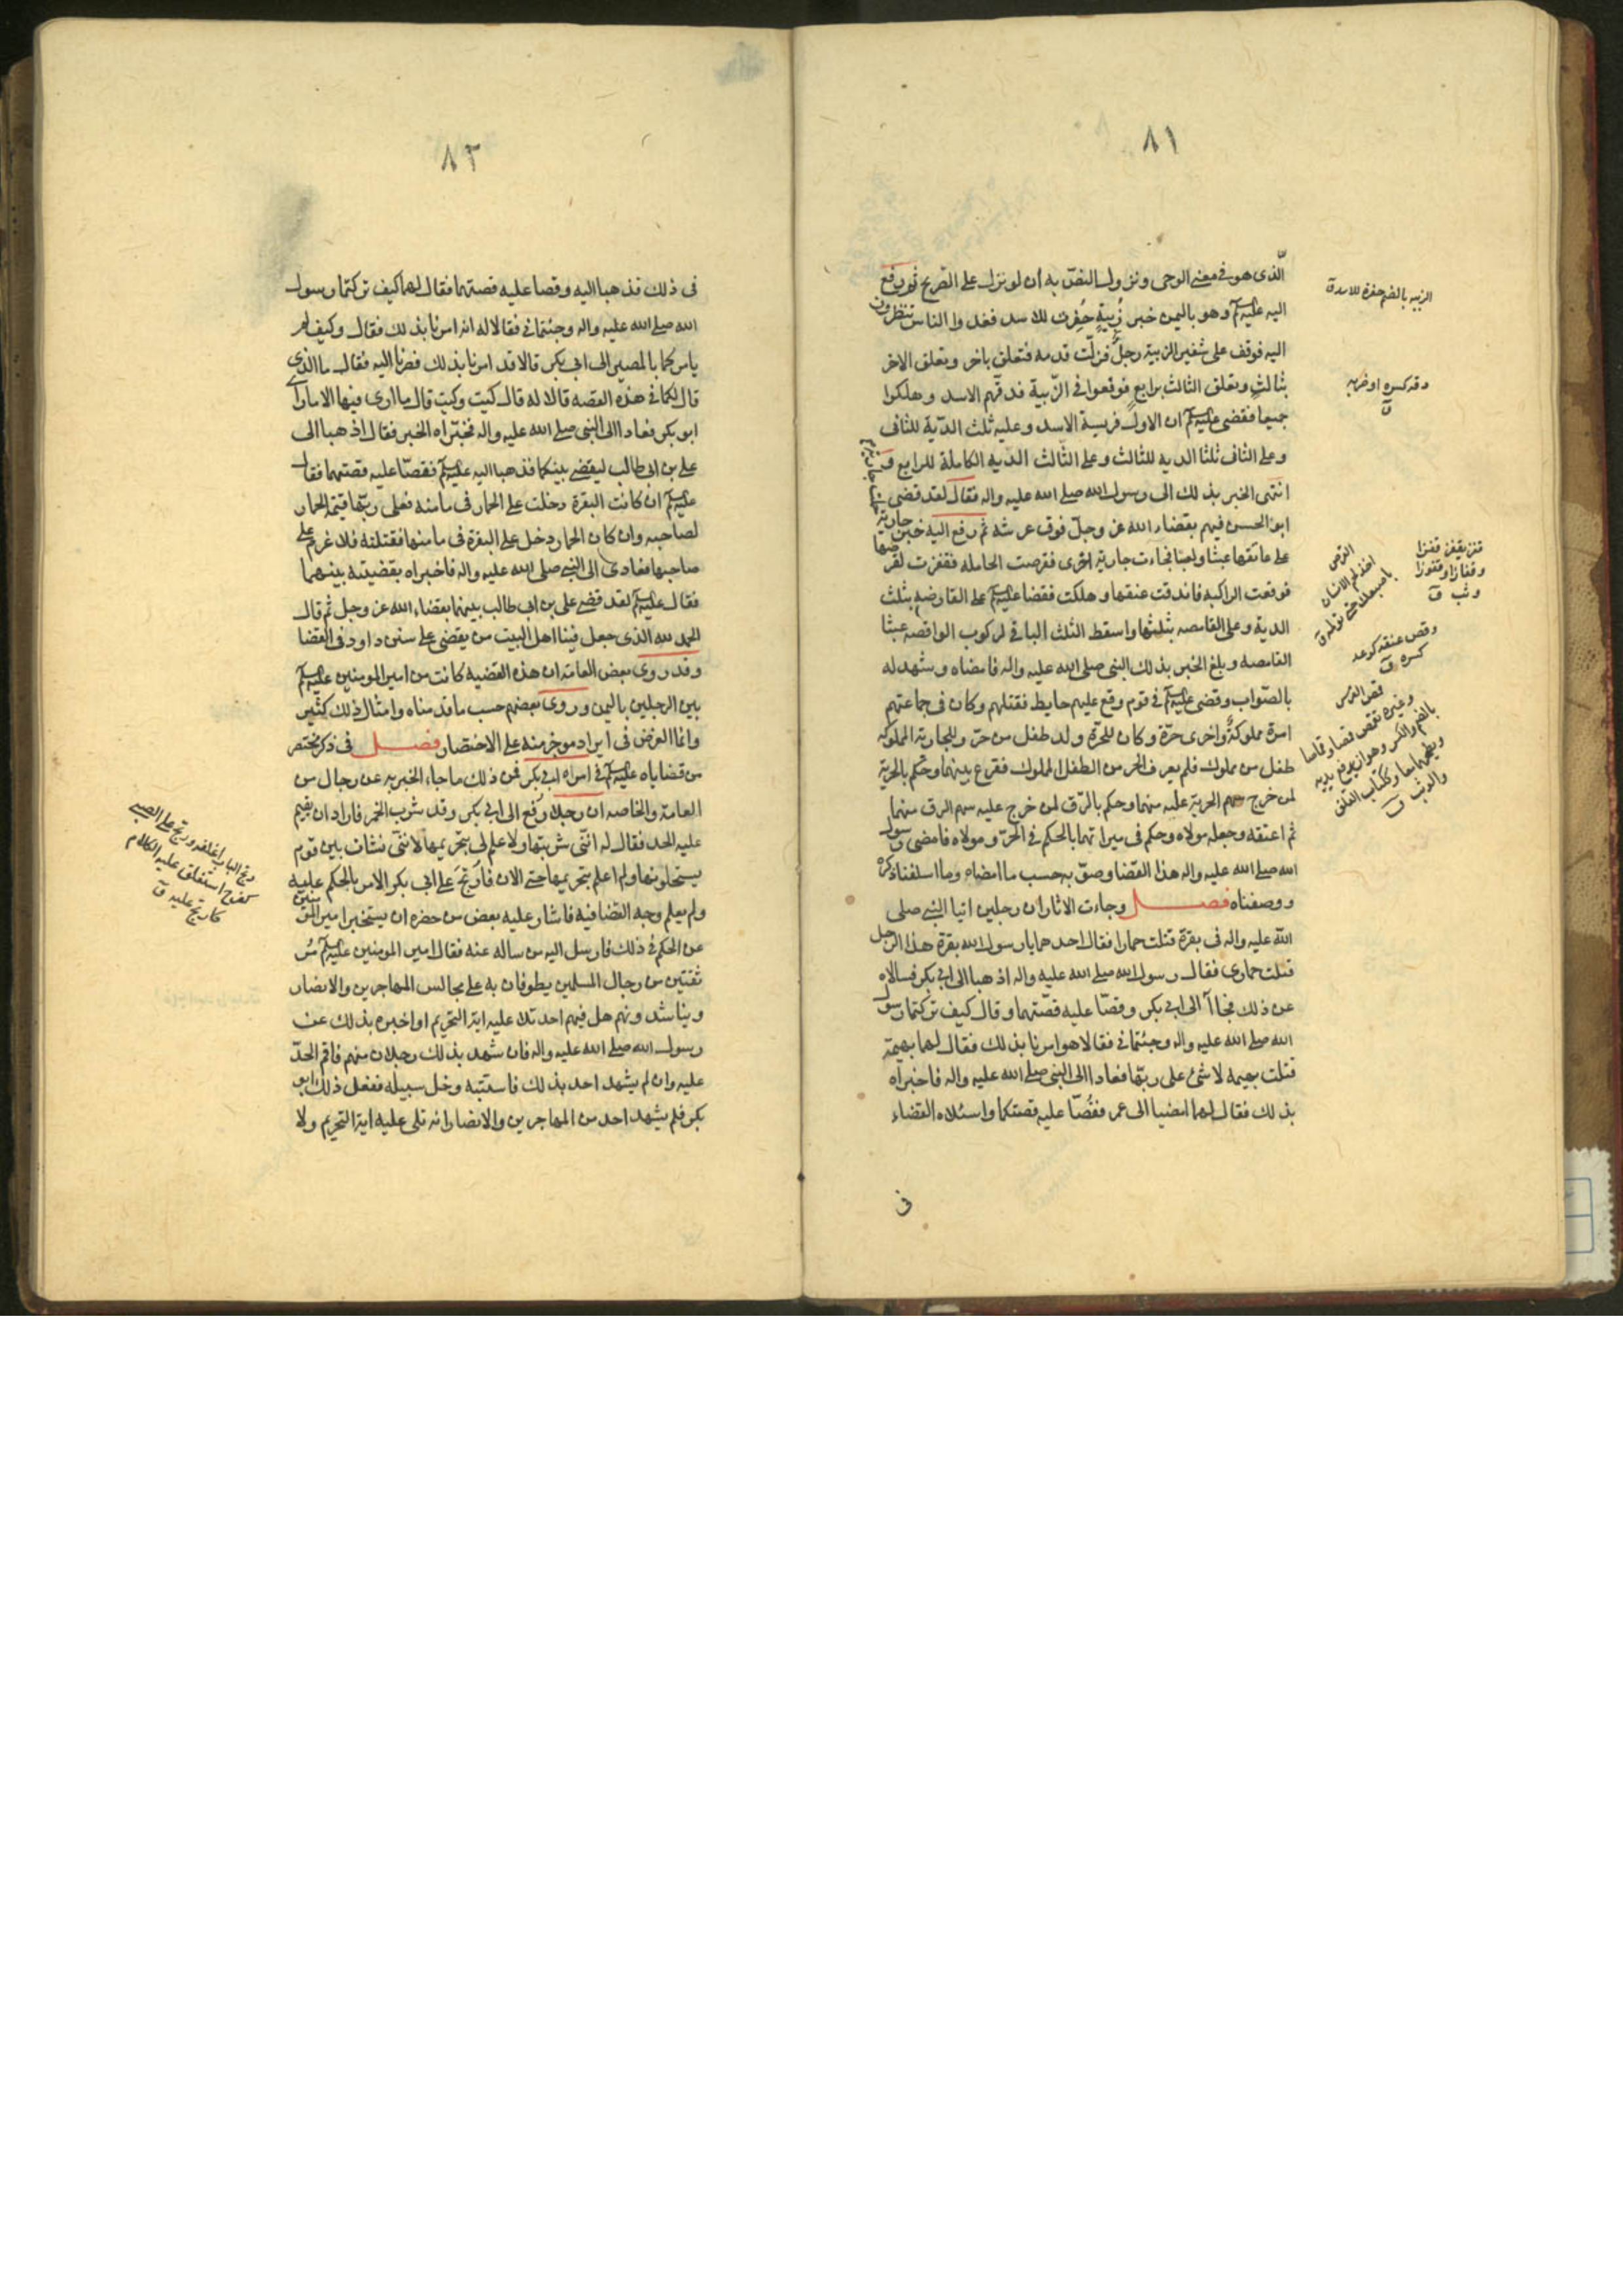 ٨١
الّذى هو فى معنى الوحى ونزول النصّ به ان لو نزل على الصّريح ثم رفع
اليه عليه السلم وهو باليمن خبر زُبيةٍ حُفِرت للاسد فغدوا الناس ينظرون
اليه فوقف على شفير الزبية رجلٌ فزلّت قدمه فتعلق باخر وتعلق الاخر
بثالثٍ وتعلق الثالث برابعٍ فوقعوا فى الزّبية فدقّهم الاسد وهلكوا
جميعا فقضى عليه السلم ان الاول فريسة الاسد وعليه ثلث الدّية للثانى
وعلى الثانى ثلثا الديه للثالث وعلى الثالث الديه الكاملة للرابع
انتهى الخبر بذلك الى رسول الله صلى الله عليه واله فقال لقد قضى
ابو الحسن فيهم بقضاء الله عز وجلّ فوق عرشه ثم رفع اليه خبر جارية
على عاتقها عبثا ولعبا فجاءت جارية اخرى فقرصت الحامله فقفزت لقرصها
فوقعت الراكبه فاندقت عنقها وهلكت فقضا عليه السلم على القارصه بثلث
الدية وعلى القامصه بثلثها واسقط الثلث الباقى لركوب الواقصه عبثا
القامصه وبلغ الخبر بذلك النبى صلى الله عليه واله فامضاه وشهد له
بالصّواب وقضى عليه السلم فى قوم وقع عليهم حايط فقتلهم وكان فى جماعتهم
امرة مملوكةٌ واخرى حرّة وكان للحرّة ولد طفل من حرّ وللجارية المملوكه
طفل من مملوك فلم يعرف الحر من الطفل المملوك فقرع بينهما وحكم بالحرية
لمن خرج سهم الحرية عليه منهما وحكم بالرّق لمن خرج عليه سهم الرق منهما
ثم اعتقه وجعله مولاه وحكم فى ميراثهما بالحكم فى الحرّ ومولاه فامضى رسول
الله صلى الله عليه واله هذا القضا وصوّبه حسب ما امضاه وما اسلفناه ذكره
ووصفناه فصل وجاءت الاثار ان رجلين اتيا النبى صلى
الله عليه واله فى بقرة قتلت حمارا فقال احدهما يا رسول الله بقرة هذا الرجل
قتلت حمارى فقال رسول الله صلى الله عليه واله اذهبا الى ابى بكر فسالاه
عن ذلك فجاآ الى ابى بكر وقصّا عليه قصّتهما وقال كيف تركتما رسول
الله صلى الله عليه واله وجئتمانى فقالا هو امرنا بذلك فقال لهما بهيمة
قتلت بهيمه لا شئ على ربّها فعادا الى النبى صلى الله عليه واله فاخبراه
بذلك فقال لهما امضيا الى عمر فقُصّا عليه قصتكما واسئلاه القضاء
فى
الزبيه بالضم حفرة للاسد ق
دقه كسره او ضربه
ق
قفز يقفز قفزا
وقفازا وقفوزا
وثب ق
القرص
اخذ لحم الانسان
باصبعك حتى تولمه ق
وقص عنقه كوعد
كسره ق
قمص الفرس
وغيره يقمص قمصا وقماصا
بالضم والكسر وهو ان يرفع يديه
ويطرحهما معا وككتاب القلق
والوثب ق
٨٢
فى ذلك فذهبا اليه وقصا عليه قصتهما فقال لهما كيف تركتما رسول
الله صلى الله عليه واله وجئتمانى فقالا له انه امرنا بذلك فقال وكيف لم
يامركما بالمصير الى ابى بكر قالا قد امرنا بذلك فصرنا اليه فقال ما الذى
قال لكما فى هذه القصه قالا له قال كيت وكيت قال ما ارى فيها الا ما راى
ابو بكر فعادا الى النبى صلى الله عليه واله فخبّراه الخبر فقال اذهبا الى
على بن ابى طالب ليقضى بينكما فذهبا اليه عليه السلم فقصّا عليه قصتهما فقال
عليه السلم ان كانت البقرة دخلت على الحمار فى مامنه فعلى ربّها قيمة الحمار
لصاحبه وان كان الحمار دخل على البقرة فى مامنها فقتلته فلا غرم على
صاحبها فعادى الى النبى صلى الله عليه واله فاخبراه بقضيته بينهما
فقال عليه السلم لقد قضى على بن ابى طالب بينهما بقضاء الله عز وجل ثم قال
الحمد لله الذى جعل فينا اهل البيت من يقضى على سنن داود فى القضا
وقد روى بعض العامة ان هذه القضيه كانت من امير المومنين عليه السلم
بين الرجلين باليمن وروى بعضهم حسب ما قدمناه وامثال ذلك كثير
وانما الغرض فى ايراد موجز منه على الاختصار فصل فى ذكر مختصر
من قضاياه عليه السلم فى امراه ابى بكر فمن ذلك ما جاء الخبر به عن رجال من
العامة والخاصه ان رجلا رُفع الى ابى بكر وقد شرب الخمر فاراد ان يقيم
عليه الحد فقال له اننّى شربتها ولا علم لى بتحريمها لاننّى نشات بين قوم
يستحلونها ولم اعلم بتحريمها حتى الان فارتج على ابى بكر الامر بالحكم عليه
ولم يعلم وجه القضا فيه فاشار عليه بعض من حضره ان يستخبر امير المؤمنين
عن الحكم فى ذلك فارسل اليه من ساله عنه فقال امير المومنين عليه السلم مُر
ثقتين من رجال المسلمين يطوفان به على مجالس المهاجرين والانصار
ويناشدونهم هل فيهم احد تلا عليه اية التحريم او اخبره بذلك عن
رسول الله صلى الله عليه واله فان شهد بذلك رجلان منهم فاقم الحدّ
عليه وان لم يشهد احد بذلك فاستتبه وخل سبيله ففعل ذلك ابو
بكر فلم يشهد احد من المهاجرين والانصار انه تلى عليه اية التحريم ولا
رتج الباب اغلقه ورتج على الصبى
كفرح استغلق عليه الكلام
كارتج عليه ق